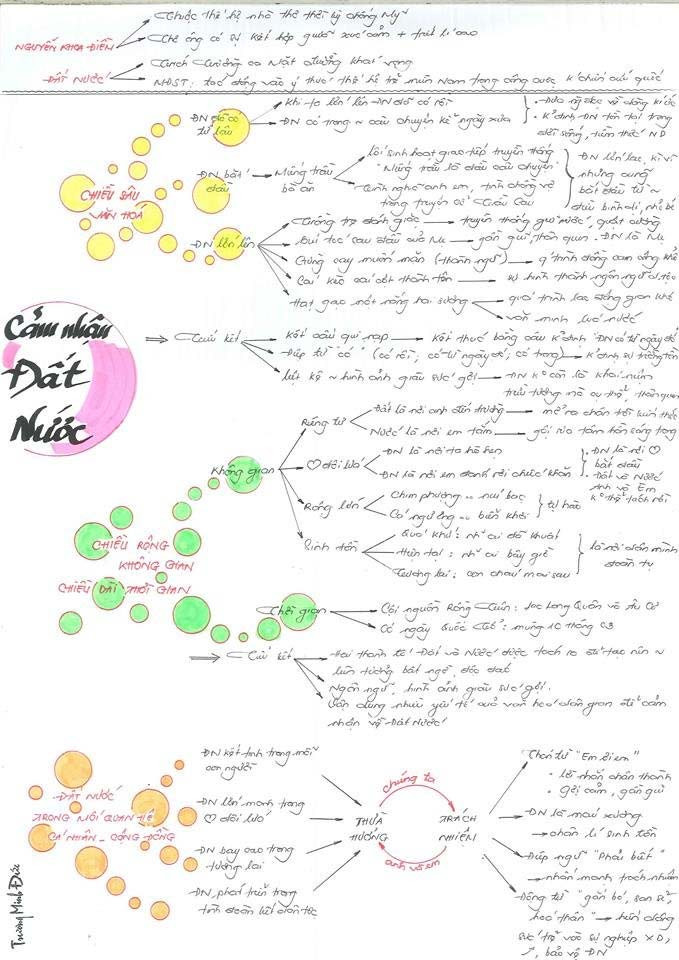 NGUYỄN KHOA ĐIỀM
Thuộc thế hệ nhà thơ thời kỳ chống Mỹ
Thơ ông có sự kết hợp giữa xúc cảm +
ĐẤT NƯỚC
Trích Trường ca Mặt đường khát vọng
MĐST: tác động vào ý thức thế hệ trẻ miền Nam trong công cuộc k' chiến cứu quốc
Cảm nhận
Đất
Nước
CHIỀU SÂU
VĂN HOÁ
ĐN đã có
từ lâu
Khi ta lớn lên ĐN đã có rồi
ĐN có trong ~ câu chuyện kể ngày xưa
ĐN bắt
đầu
Miếng trầu
bà ăn
Lối sinh hoạt giao tiếp truyền thống
"Miếng trầu là đầu câu chuyện"
Tình nghĩa anh em, tình chồng vợ
trong truyện cổ Trầu Cau
ĐN lớn lên
Trồng tre đánh giặc → truyền thống giữ nước, quật cường
Búi tóc sau đầu của Mẹ → gần gũi, thân quen. ĐN là Mẹ
Gừng cay muối mặn (thành ngữ)
Cái kèo cái cột thành tên → sự hình thành ngôn ngữ d.tộc
Hạt gạo một nắng hai sương → quá trình lao động gian khổ
văn minh lúa nước
⇒ Tiểu kết
Kết cấu qui nạp → Kết thúc bằng câu k' định "ĐN có từ ngày đó"
Điệp từ "có" (có rồi; có từ ngày đó; có trong) → k' định sự trường tồn
Liệt kê ~ hình ảnh giàu sức gợi → ĐN k° còn là khái niệm
trừu tượng mà cụ thể, thân quen
CHIỀU RỘNG
KHÔNG GIAN
CHIỀU DÀI THỜI GIAN
Không gian
Riêng tư
Đất là nơi anh đến trường → mở ra chân trời kiến thức
Nước là nơi em tắm
♡ đôi lứa
ĐN là nơi ta hò hẹn
ĐN là nơi em đánh rơi chiếc khăn
. ĐN là nơi ♡
bắt đầu
. Đất và Nước
Anh và Em
k° thể tách rời
Rộng lớn
Chim phượng .. núi bạc
Cá ngư ông .. biển khơi
tự hào
Sinh tồn
Quá khứ: những ai đã khuất
Hiện tại: những ai bây giờ
Tương lai: con cháu mai sau
là nơi dân mình
đoàn tụ
Thời gian
Cội nguồn Rồng Tiên: Lạc Long Quân và Âu Cơ
Có ngày Quốc Tổ: mùng 10 tháng 03
⇒ Tiểu kết
Hai thành tố Đất và Nước được tách ra để tạo nên ~
liên tưởng bất ngờ, độc đáo
Ngôn ngữ, hình ảnh giàu sức gợi.
Vận dụng nhiều yếu tố của văn hoá dân gian để cảm
nhận về Đất Nước
ĐẤT NƯỚC
TRONG MỐI QUAN HỆ
CÁ NHÂN - CỘNG ĐỒNG
ĐN kết tinh trong mỗi
con người
ĐN lớn mạnh trong
♡ đôi lứa
ĐN bay cao trong
tương lai
ĐN phát triển trong
tình đoàn kết dân tộc
THỪA
HƯỞNG
chúng ta
anh và em
TRÁCH
NHIỆM
Thán từ "Em ơi em"
. lời nhắn chân thành
. gợi cảm, gần gũi
ĐN là máu xương
→ chân lí sinh tồn
Điệp ngữ "Phải biết"
→ nhấn mạnh trách nhiệm
Động từ "gắn bó, san sẻ,
hoá thân"
sức trẻ vào sự nghiệp XD,
bảo vệ ĐN
Trương Minh Đức